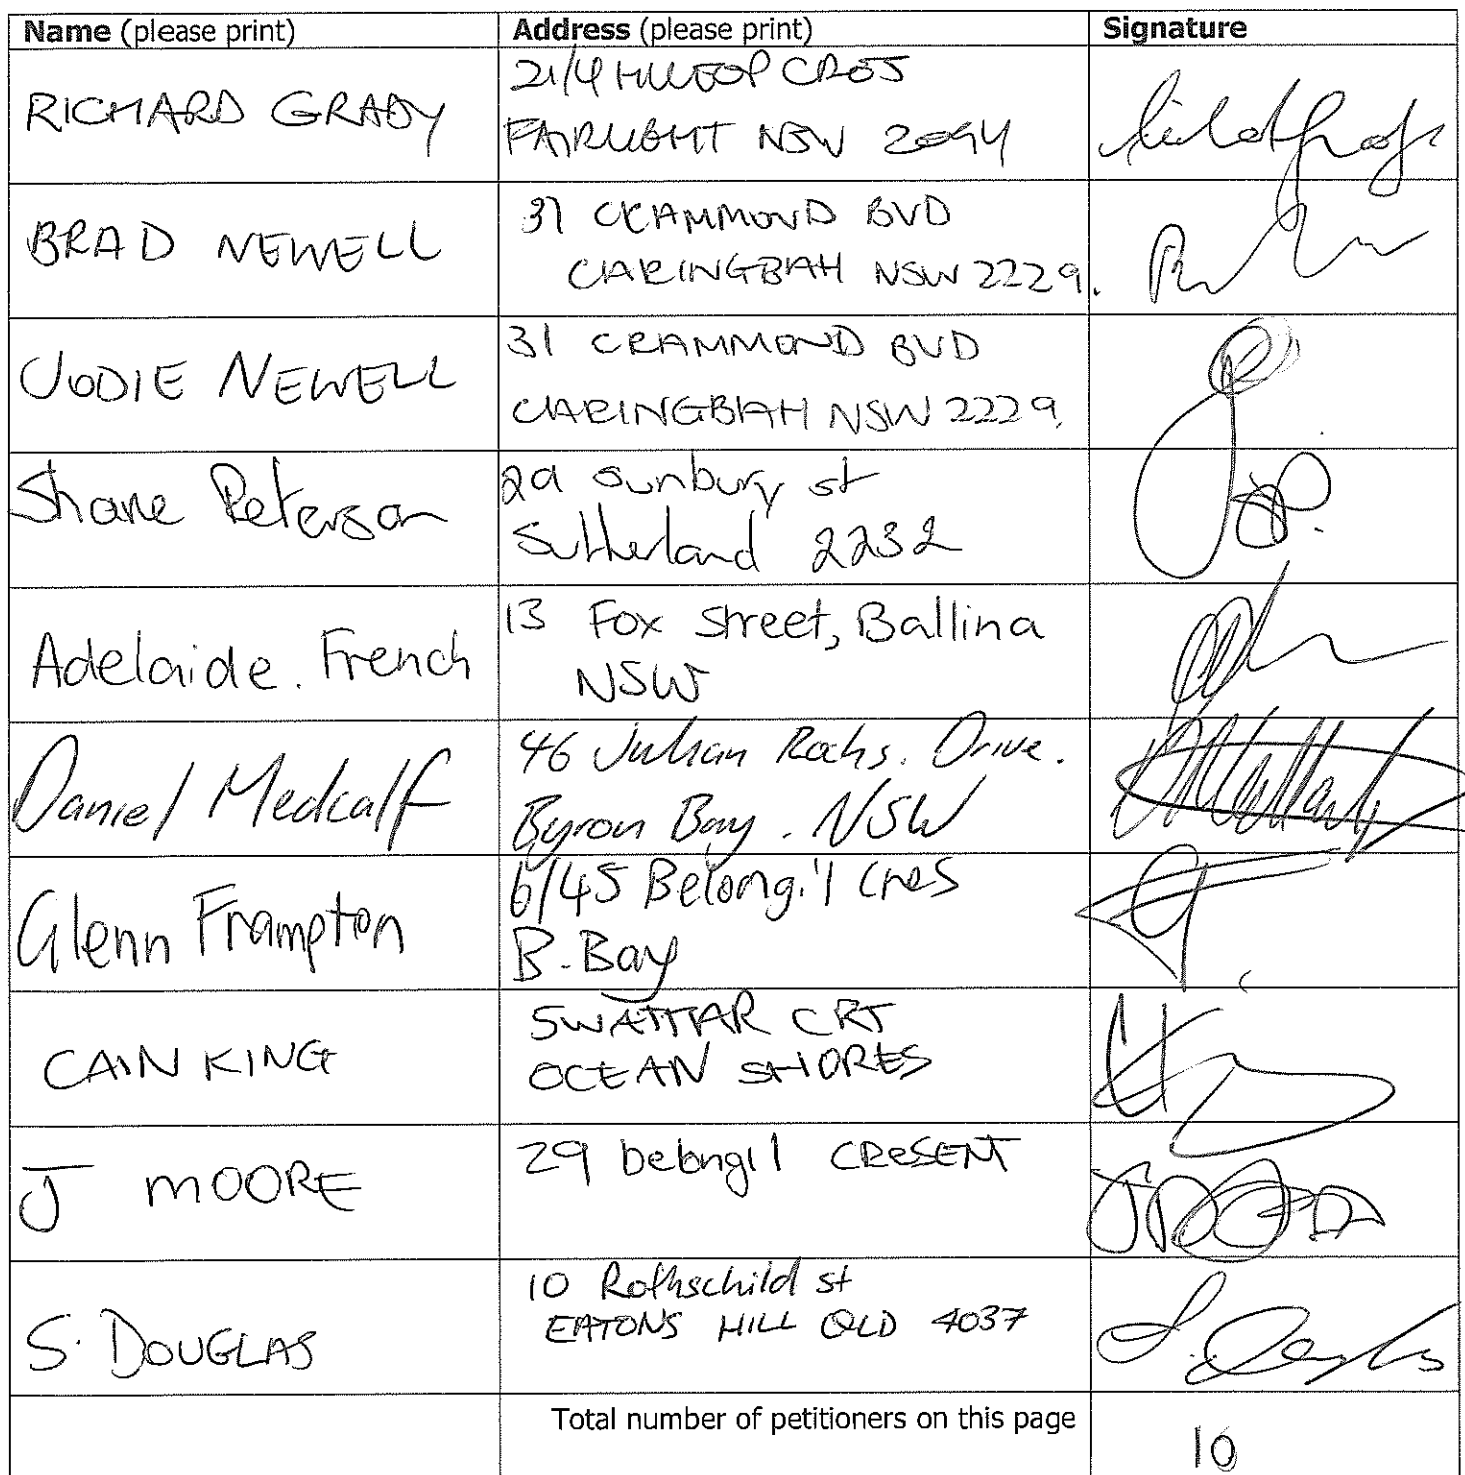 Name (please print) Address (please print) Signature
RICHARD GRADY
21/4 HILLTOP CRES
FAIRLIGHT NSW 2094
BRAD NEWELL
31 CRAMMOND BVD
CARINGBAH NSW 2229.
JODIE NEWELL
31 CRAMMOND BVD
CARINGBAH NSW 2229.
Shane Peterson
2a Sunbury st
Sutherland 2232
Adelaide. French
13 Fox Street, Ballina
NSW
Daniel Medcalf
46 Julian Rocks. Drive.
Byron Bay. NSW
Glenn Frampton
6/45 Belongil Cres
B. Bay
CAIN KING
5 WATTAR CRT
OCEAN SHORES
J MOORE
29 belongil CRESENT
S. DOUGLAS
10 Rothschild st
EATONS HILL QLD 4037
S. Douglas
Total number of petitioners on this page
10